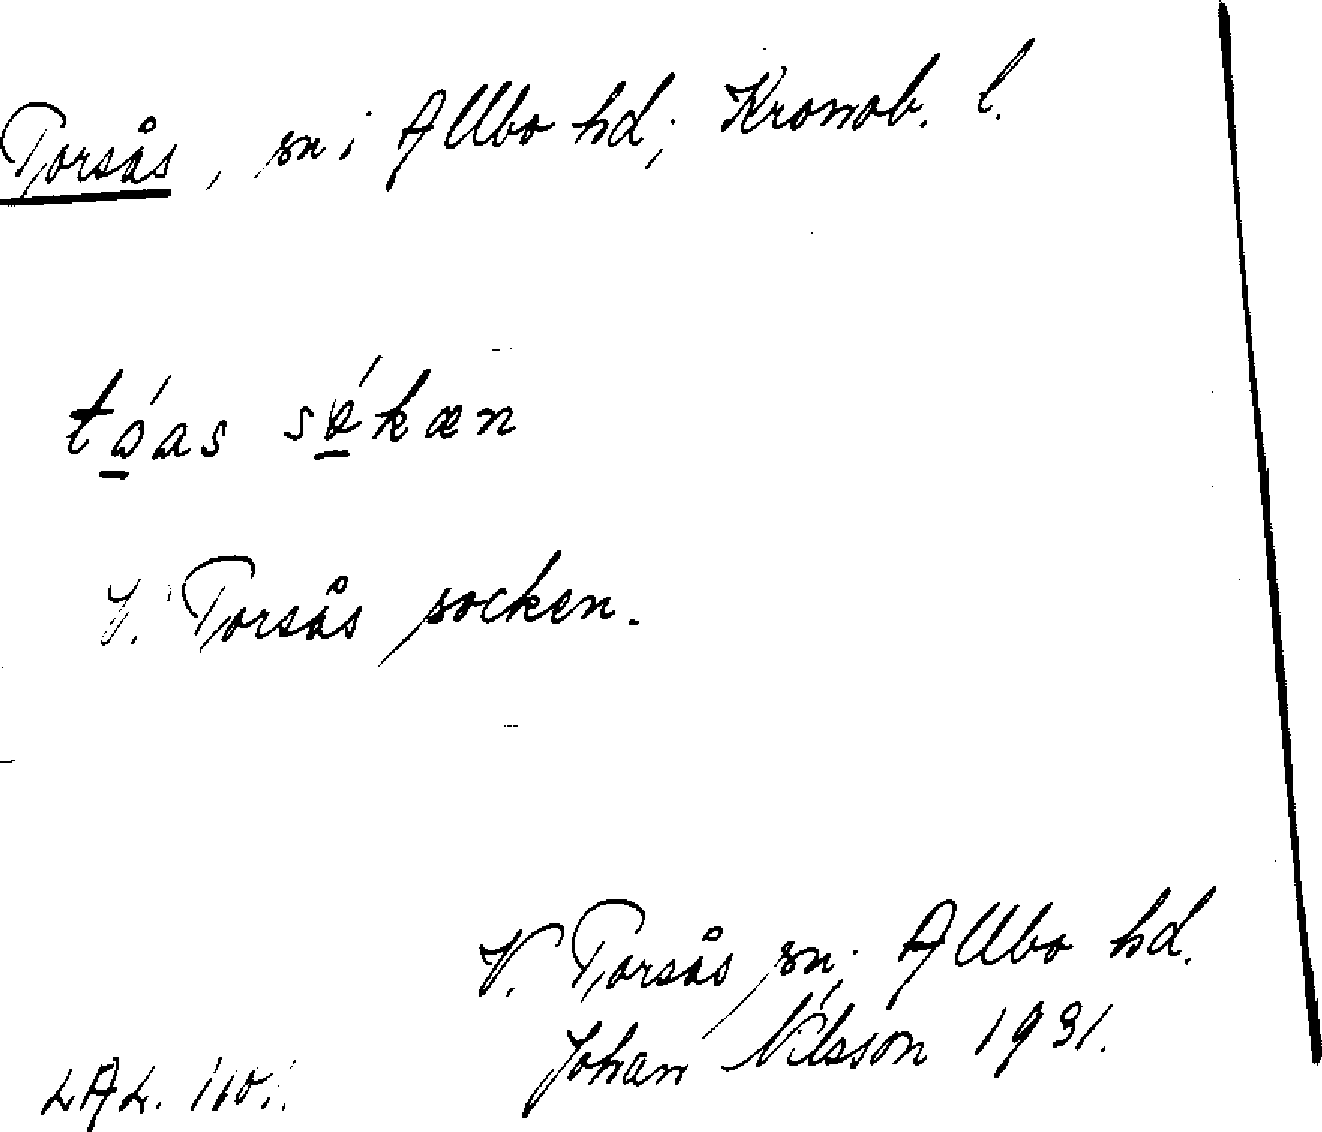 Torsås, sn i Allbo hd; Kronob. l.
tó̱as só̱kæn
V. Torsås socken.
V. Torsås sn; Allbo hd.
Johan Nilsson 1931.
LAL.